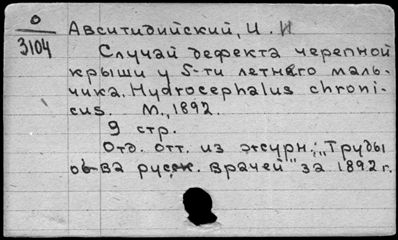 О
3104
Авситидийский, И. И
Случай дефекта черепной
крыши у 5-ти летнего маль-
чика. Hydrocephalus chroni-
cus. М., 1892.
9 стр.
Отд. отт. из журн.: "Труды
об-ва русск. врачей" за 1892 г.